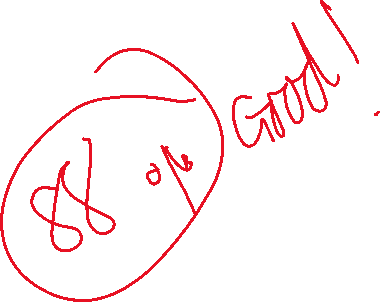 88 % Good!